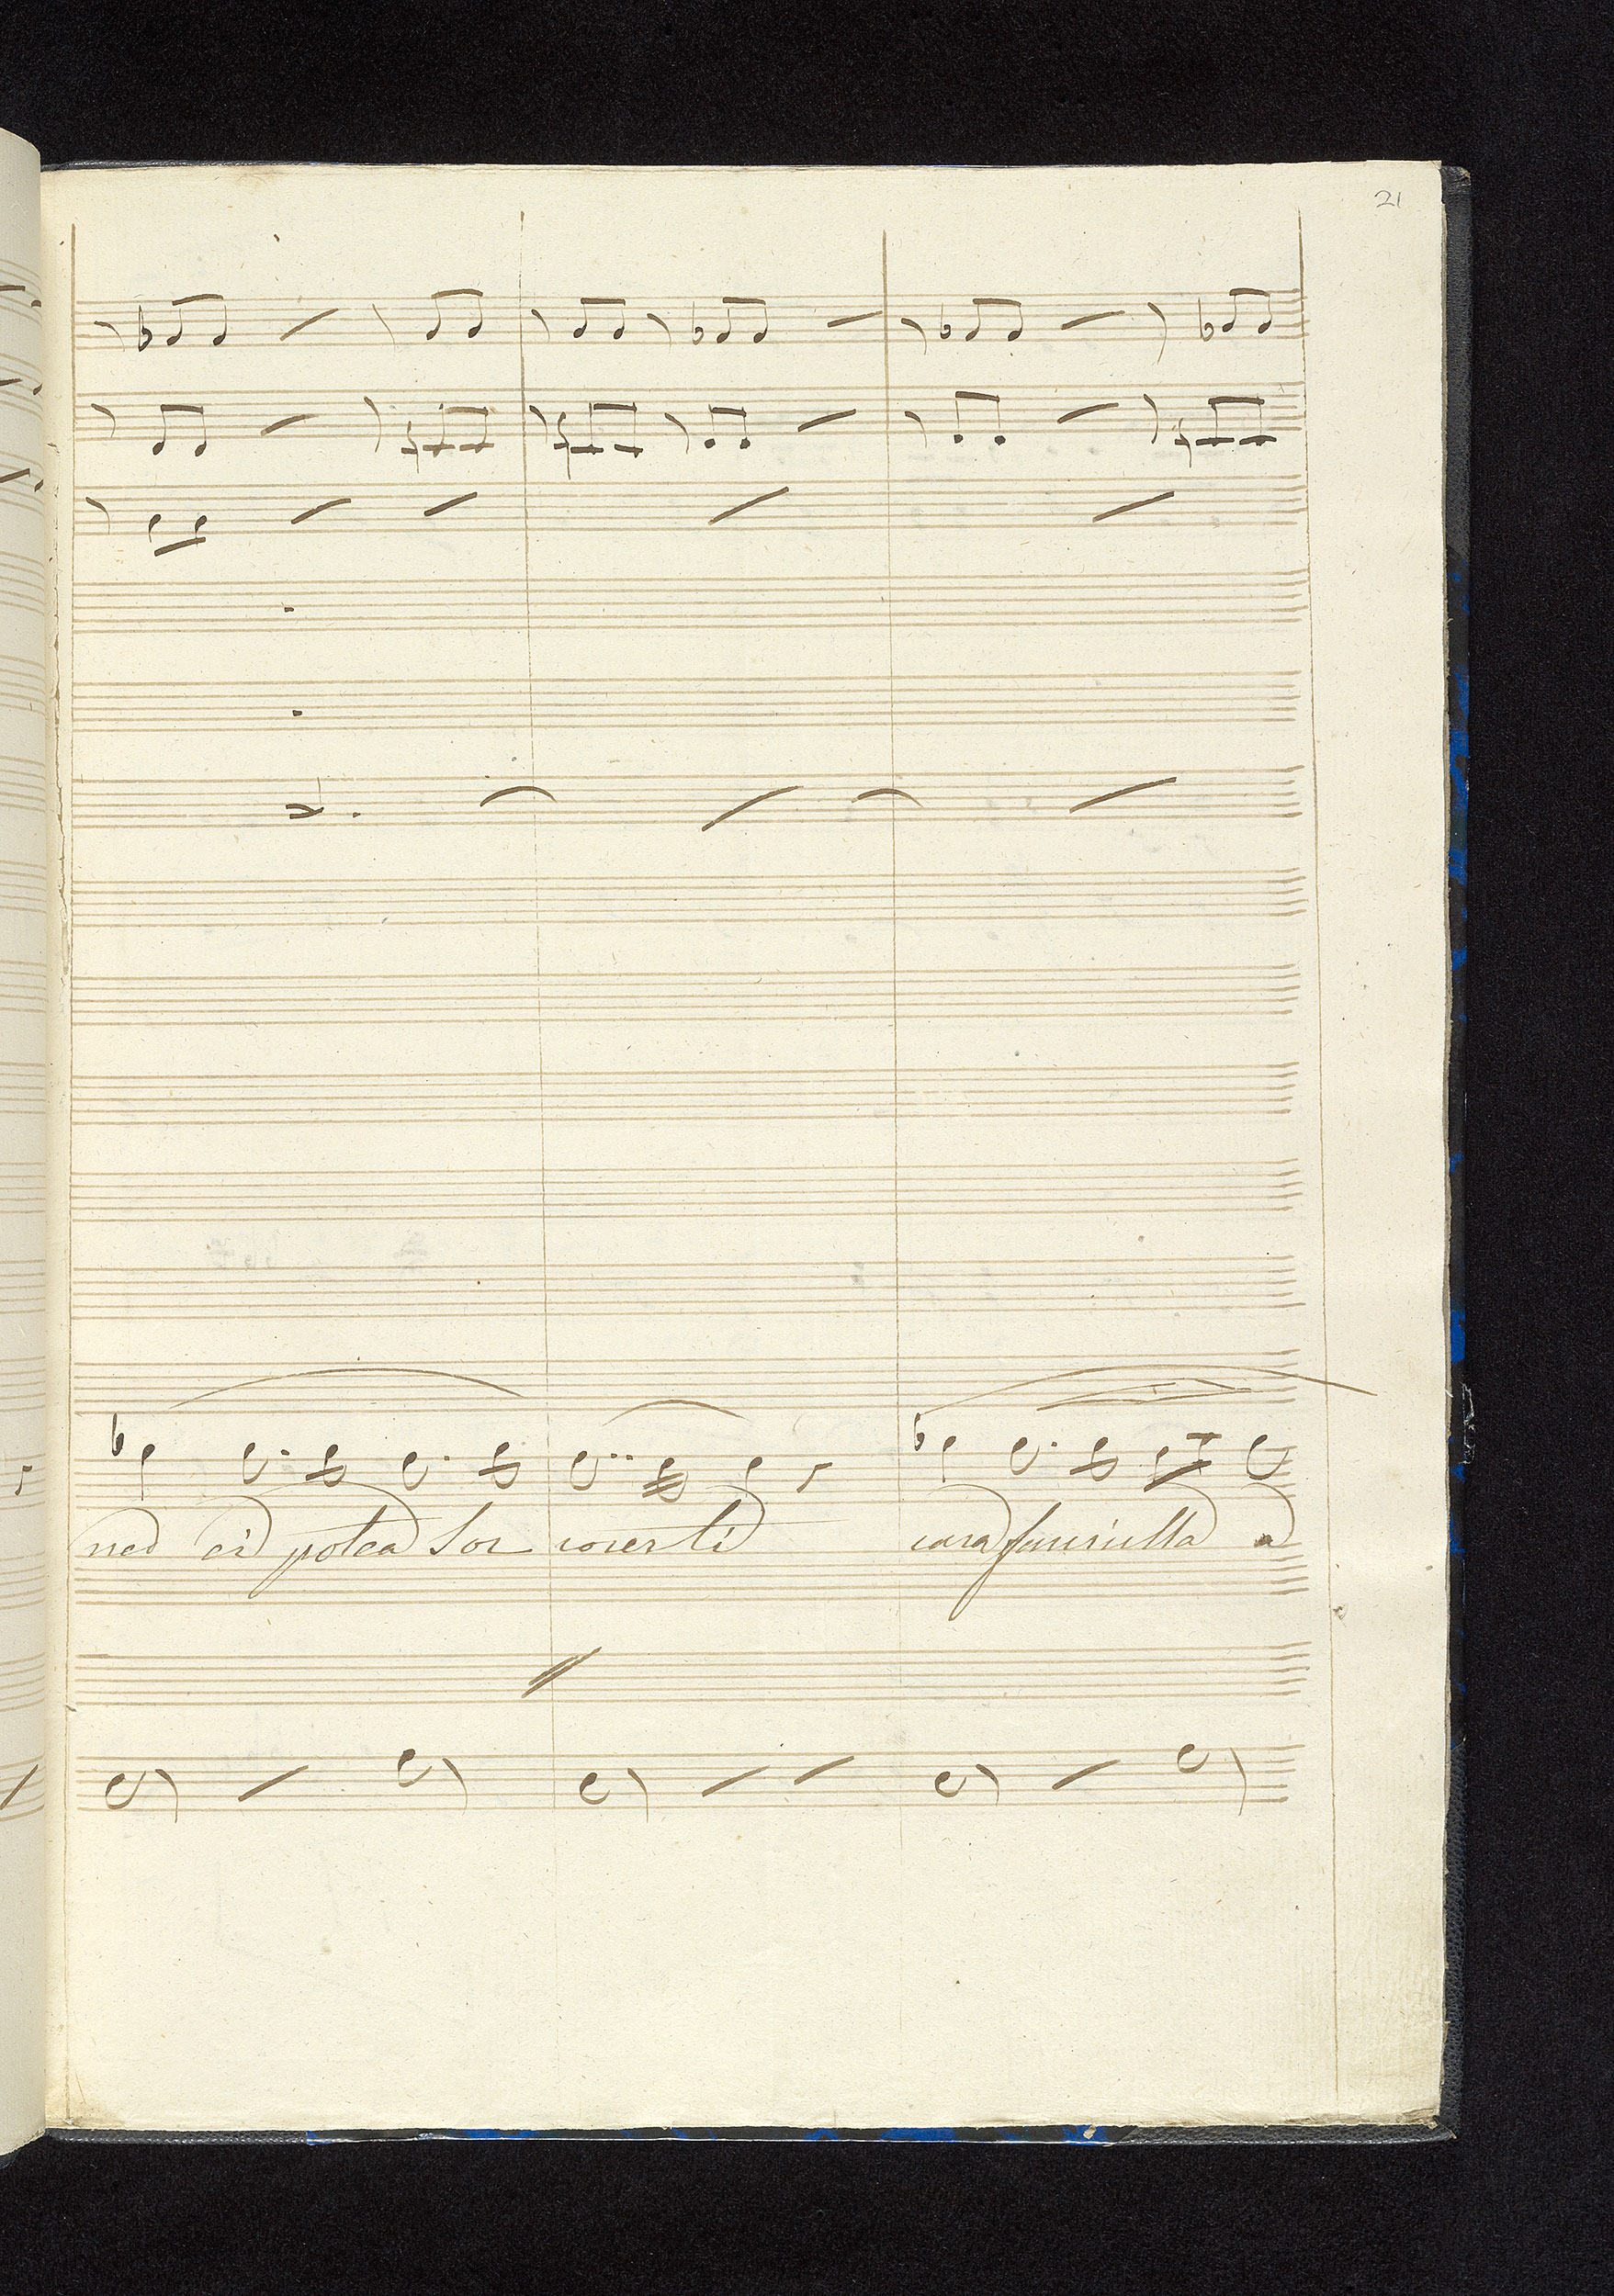 21
ned ei potea Soc correrli cara fanciulla a